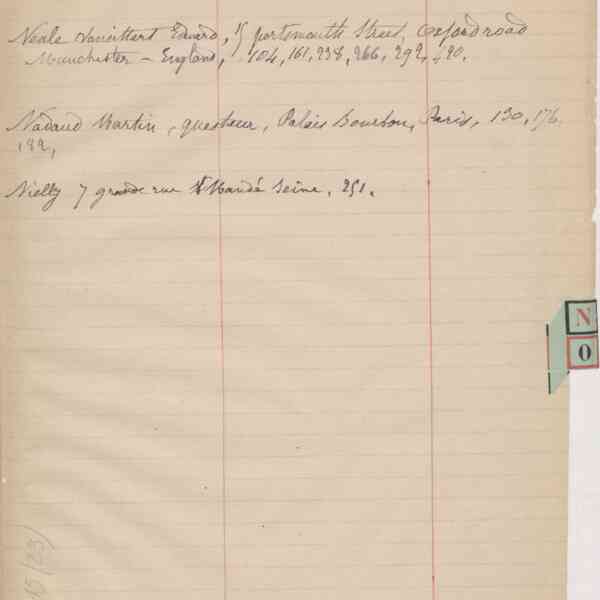 Neale Vansittart Edward, 1/ portsmouth Street, Oxford road
Manchester – England, 104, 161, 238, 266, 292, 420.
Nadaud Martin, questeur, Palais Bourbon, Paris, 130, 176.
182,
Nielly 7 grande rue St Mandé Seine. 251.
N
O
15 (23)